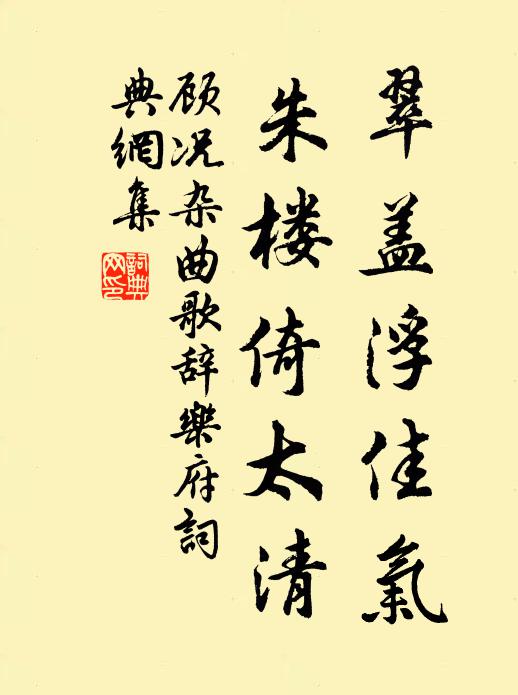 翠盖浮佳氣
朱楼倚太清
顾况杂曲歌辞樂府詞
典網集
詞典網印